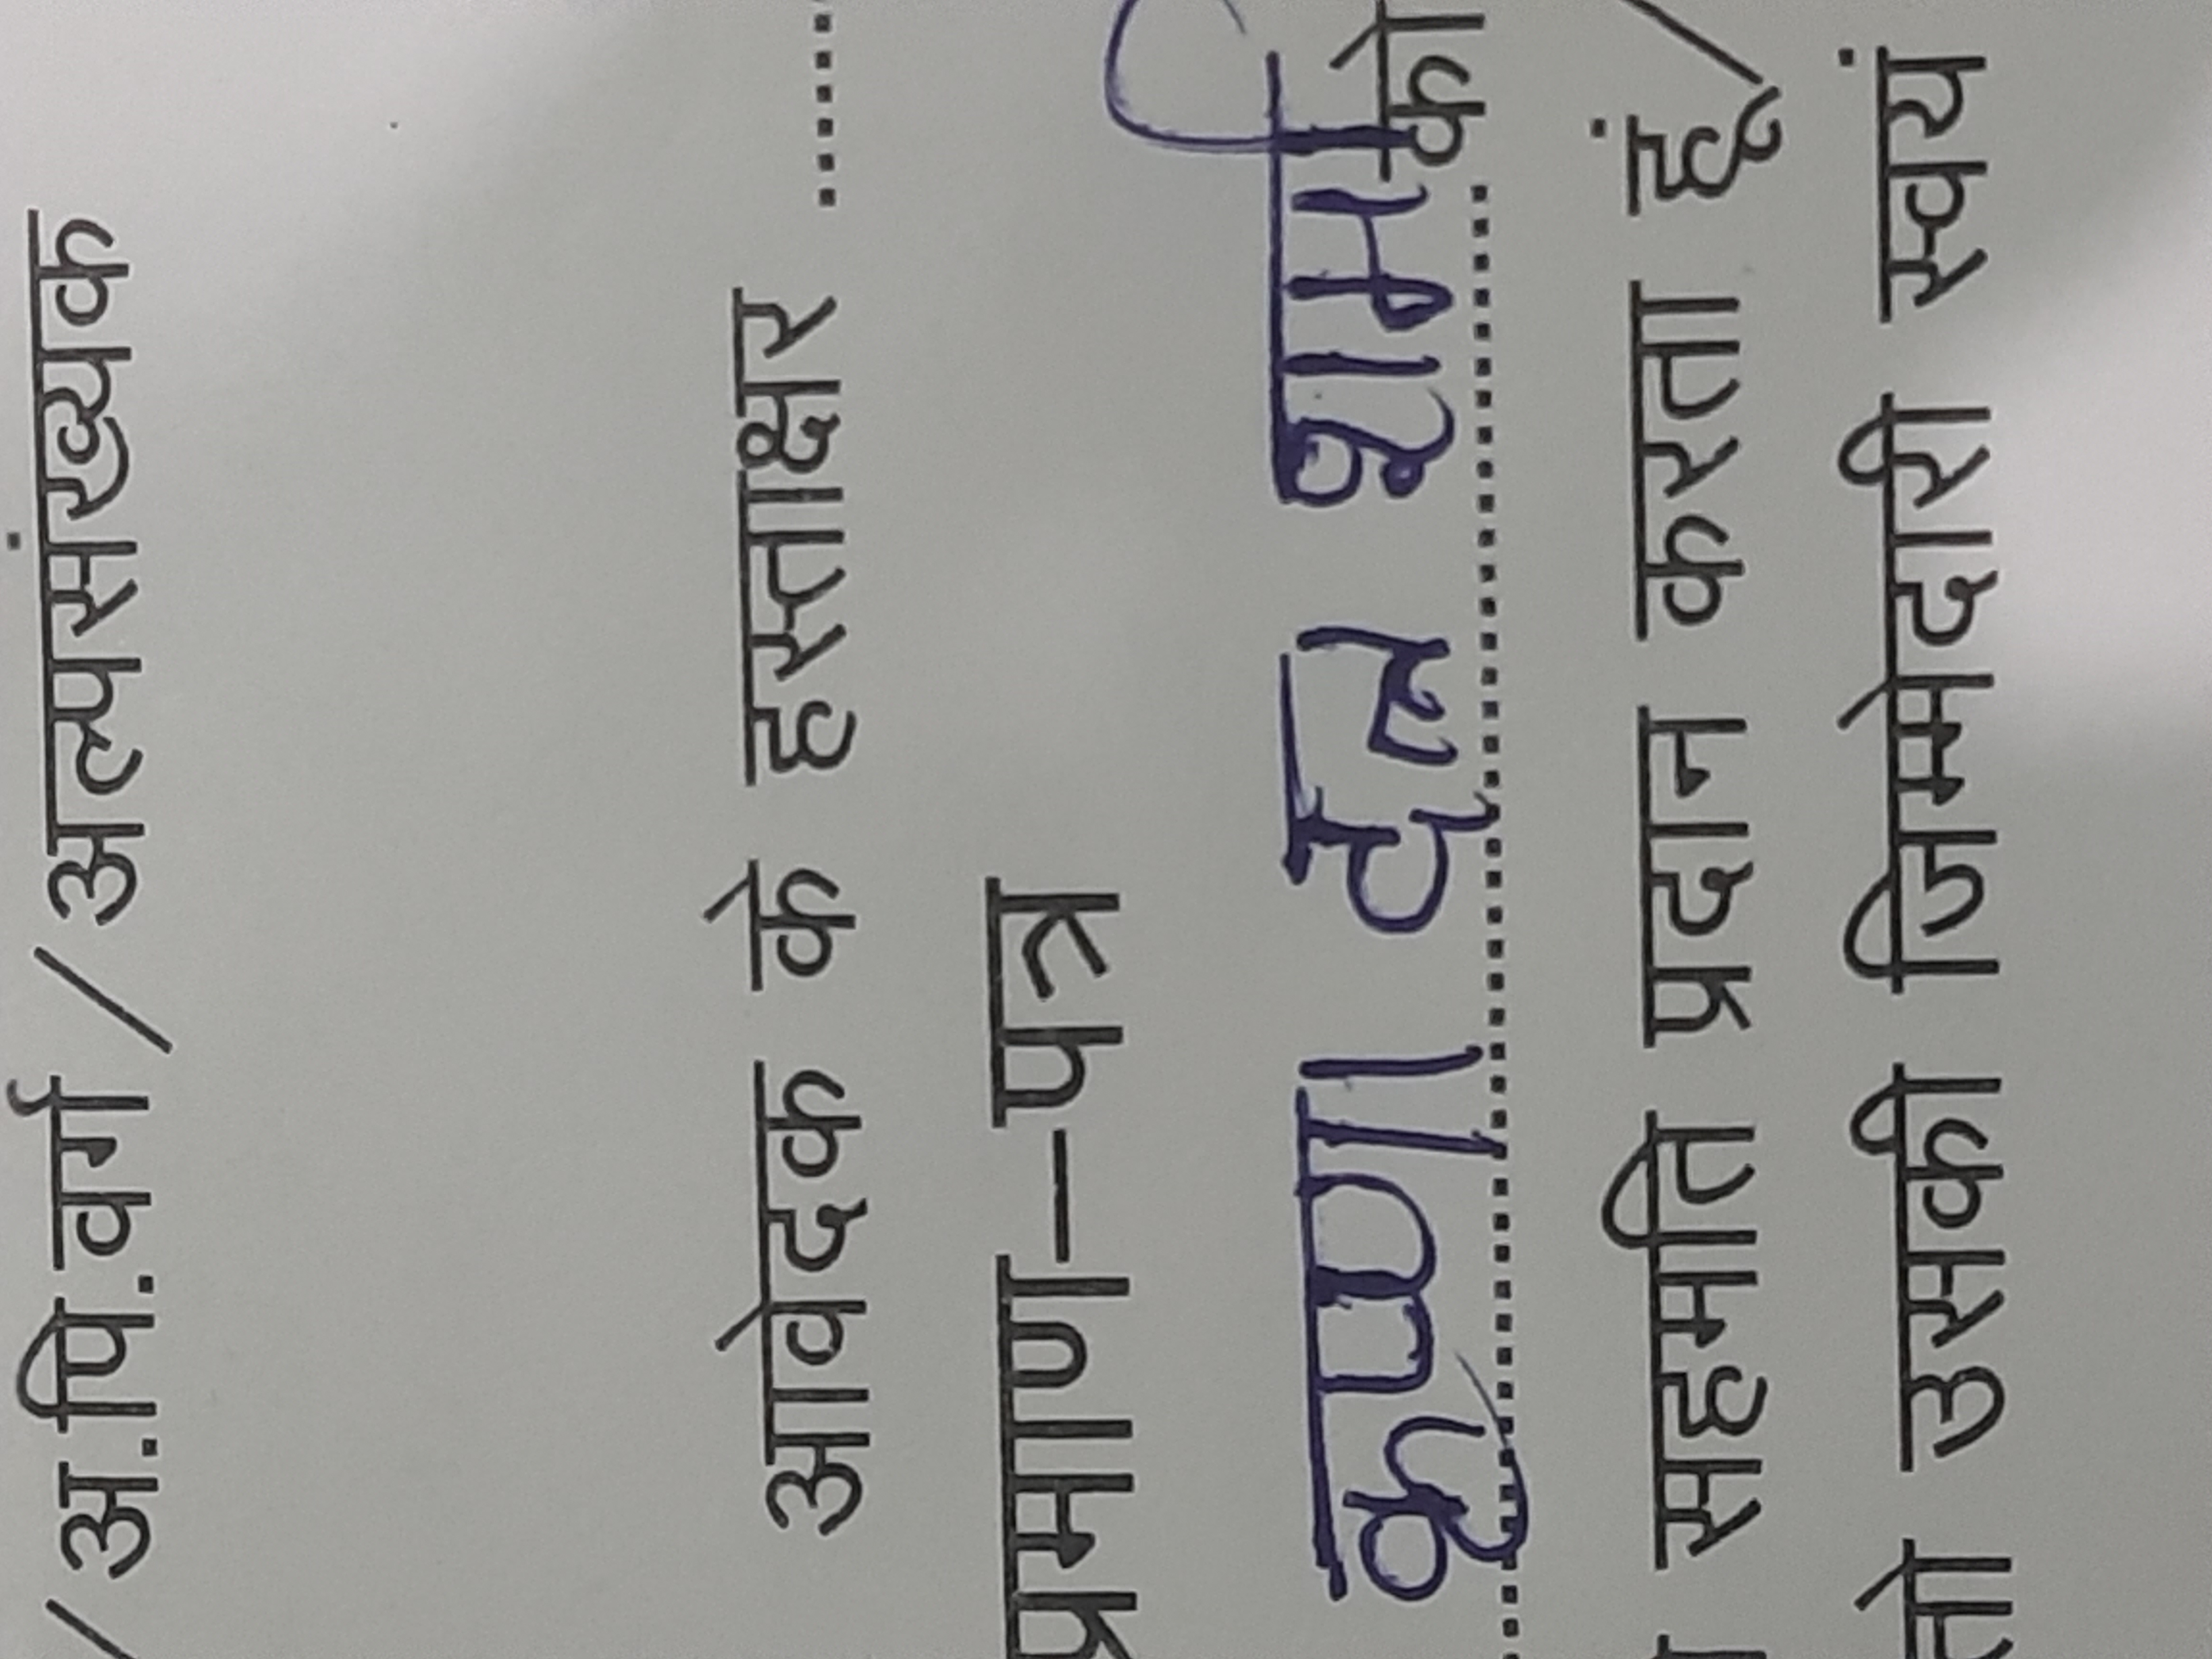 /अ.पि.वर्ग/अल्पसंख्यक
आवेदक के हस्ताक्षर ......
प्रमाण–पत्र
को
सहमति प्रदान करता हूं/
तो उसकी जिम्मेदारी स्वयं